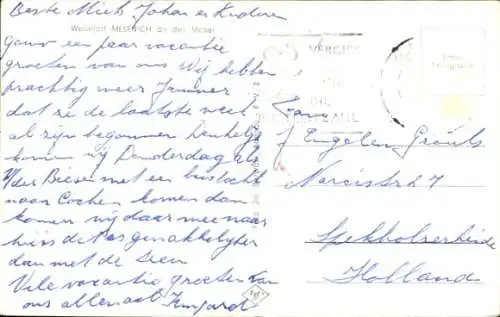 Beste Mieh Johan en Kinderen
Weindorf MESENICH an der Mosel
Gauw een paar vacantie
groeten van ons Wij hebben
prachtig weer Jammer
dat we de laatste week
al zijn begonnen Denkelijk
komen wij Donderdag als
v/der Biesen met een bustocht
naar Cochem komen dan
komen wij daar mee naar
huis dit is gemakkelijker
dan met de trein
Vele vacantie groeten van
ons allemaal Irmgard
Fam
J Engelen
Narcisstr 27
Spekholzerheide
Holland